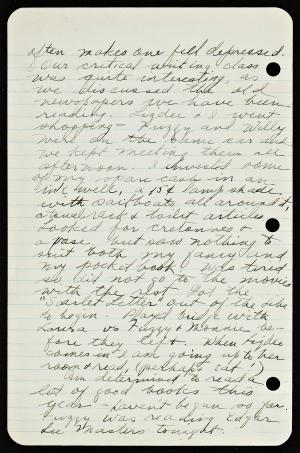 often makes one feel depressed.
Our critical writing class
was quite interesting, as
we discussed the old
newspapers we have been
reading. Lizdee & I went
shopping – Fuzzy and Willy
were on the same car and
we kept meeting them all
afternoon. I invested some
of my spare cash in an
ink well, a 15¢ lamp shade
with sailboats all around it,
a towel rack & toilet articles.
Looked for cretonnes &
a vase, but saw nothing to
suit both my fancy and
my pocket book. Was tired
so did not go to the movies
with the rest. Got the
"Scarlet Letter" out of the libe
to begin. Played bridge with
Louisa vs Fuzzy & Monnie be-
fore they left. When Lizdee
comes in I am going up to her
room & read, (perhaps eat!)
Am determined to read a
lot of good books this
year – haven't begun so far.
Fuzzy was reading Edgar
Lee Masters tonight.